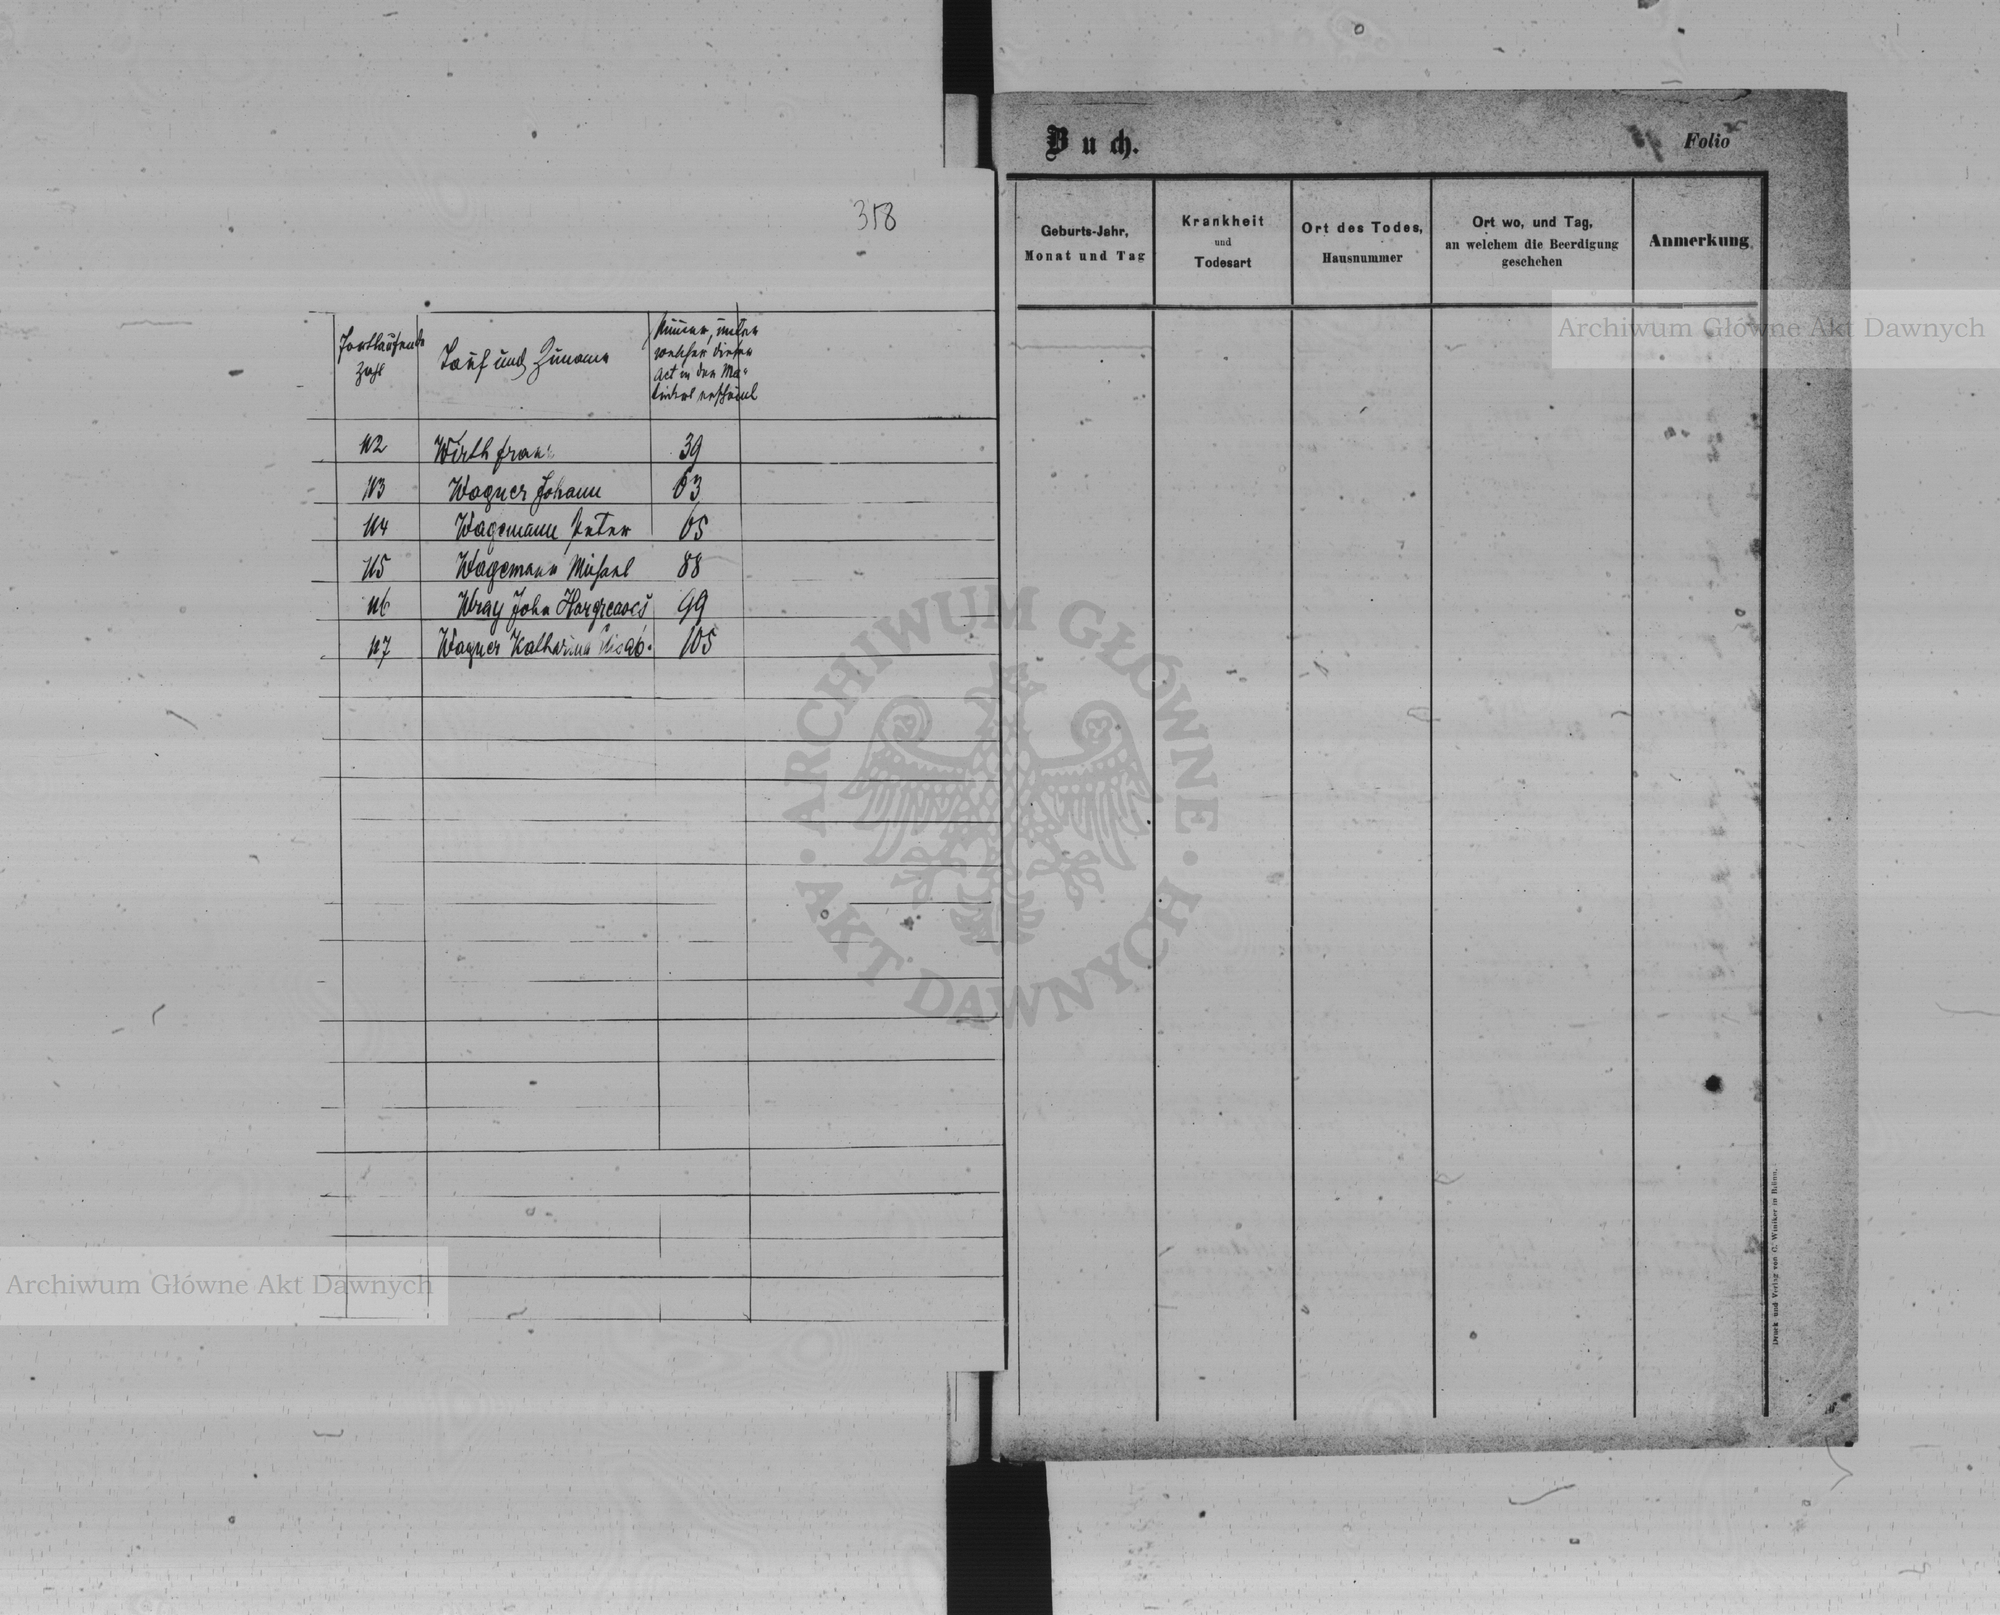 358
Fortlaufende
Zahl
Tauf und Zuname
Numer, unter
welcher dieser
Act in den Ma-
trikel erscheint
112 Wirth Franz 39
113 Wagner Johann 63
114 Wagemann Peter 65
115 Wagemann Michael 88
116 Wray John Hargreaves 99
117 Wagner Katharina Elisab. 105
Buch.
Folio
Geburts-Jahr,
Monat und Tag
Krankheit
und
Todesart
Ort des Todes,
Hausnummer
Ort wo, und Tag,
an welchem die Beerdigung
geschehen
Anmerkung
Druck und Verlag von C. Winiker in Brünn.
Archiwum Główne Akt Dawnych
ARCHIWUM GŁÓWNE
AKT DAWNYCH
Archiwum Główne Akt Dawnych